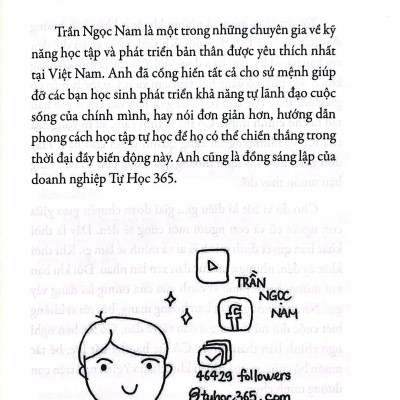 Trần Ngọc Nam là một trong những chuyên gia về kỹ
năng học tập và phát triển bản thân được yêu thích nhất
tại Việt Nam. Anh đã cống hiến tất cả cho sứ mệnh giúp
đỡ các bạn học sinh phát triển khả năng tự lãnh đạo cuộc
sống của chính mình, hay nói đơn giản hơn, hướng dẫn
phong cách học tập tự học để họ có thể chiến thắng trong
thời đại đầy biến động này. Anh cũng là đồng sáng lập của
doanh nghiệp Tự Học 365.
TRẦN
NGỌC
NAM
46429 followers
@tuhoc365.com